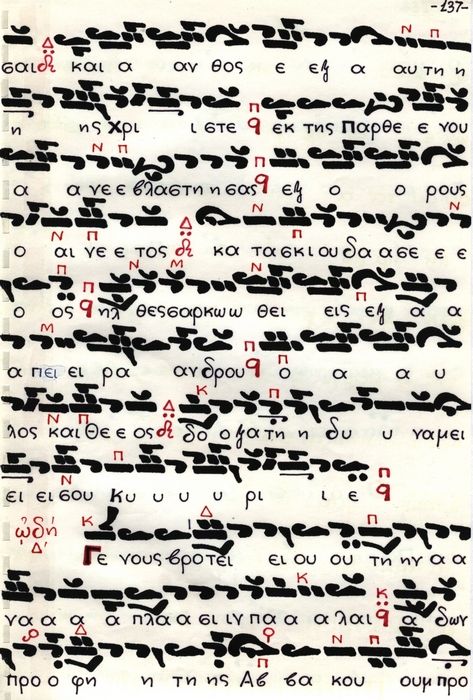 -137-
σαι και α ανθος ε εξ α αυτη η
η ης Χρι ι στε εκ της Παρθε ε νου
α α νε ε βλαστη η σας εξ ο ο ρους
ο αι νε ε τος κα τασκι ου δα ασε ε ε
ο ος ηλ θες σαρκω ω θει εις εξ α α
α πει ει ρα ανδρου ο α α υ
λος και Θε ε ος δο ο ξα τη η δυ υ ναμει
ει ει σου Κυ υ υ υ ρι ι ε
ᾠδή Δ΄ Γε νους βροτει ει ου ου τη ην α α
να α α α πλα α σι ιν πα α α λαι α δων
προ ο φη η της Αβ βα κου ουμ προ